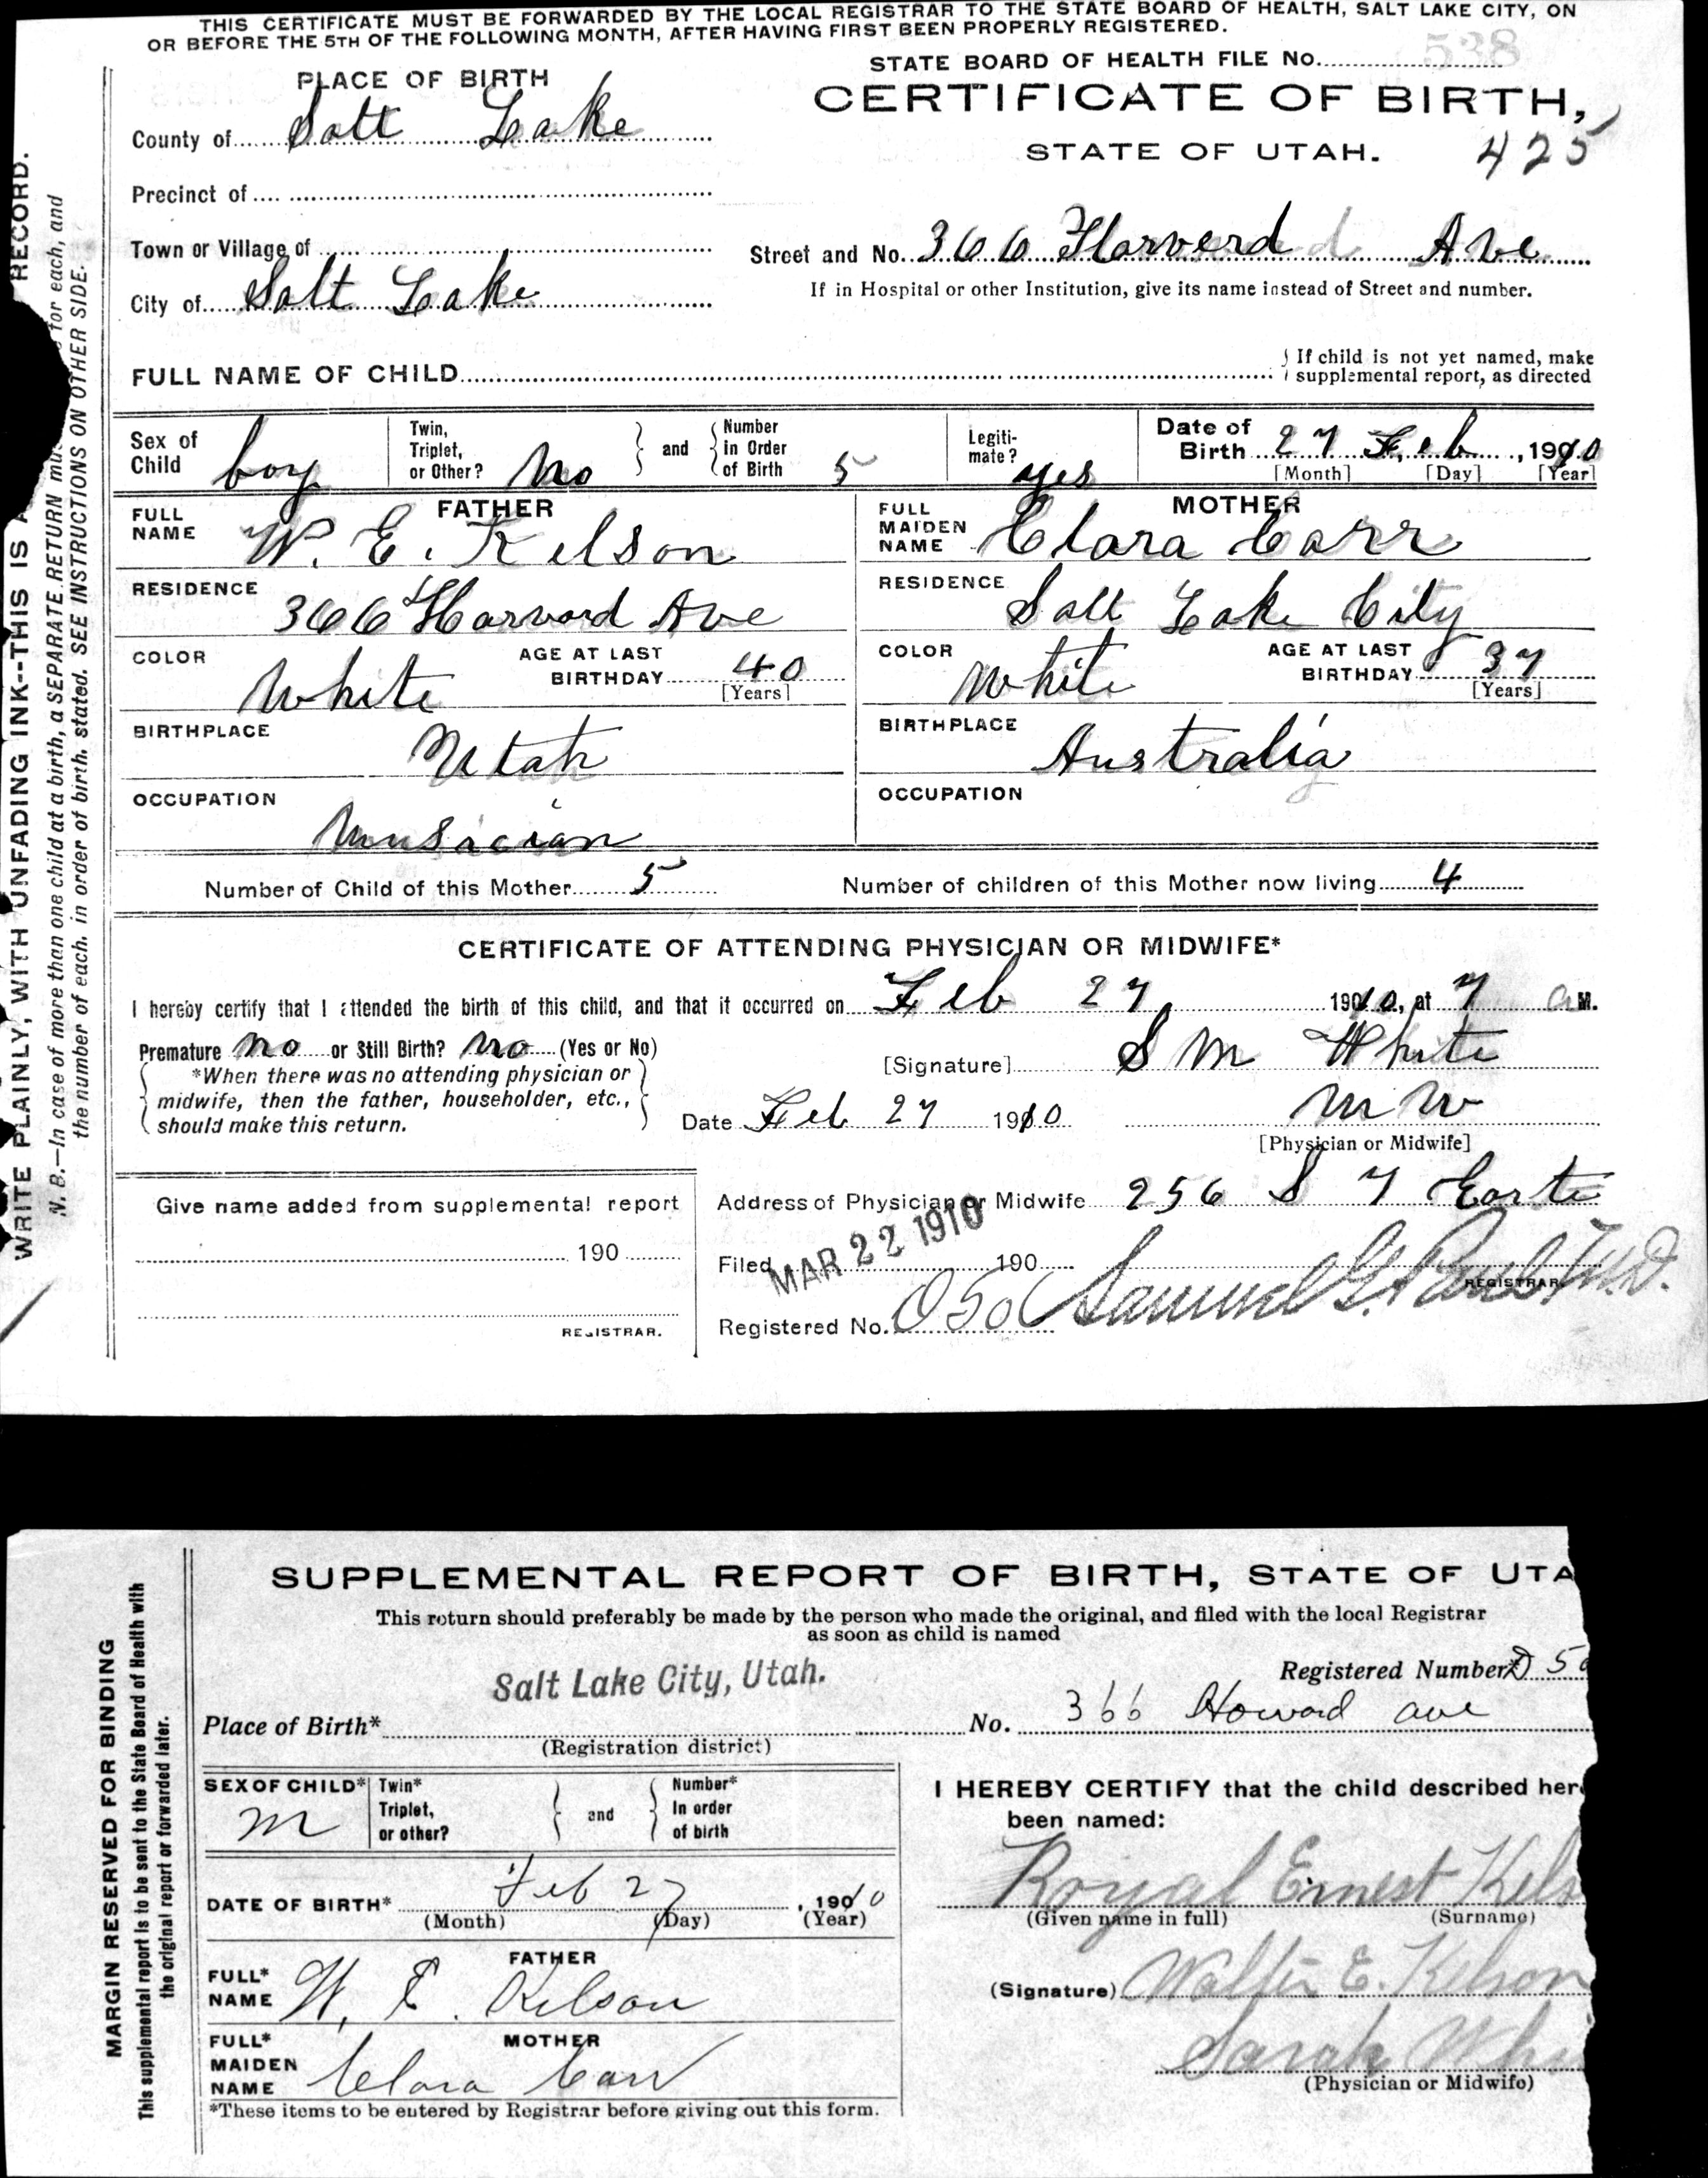 THIS CERTIFICATE MUST BE FORWARDED BY THE LOCAL REGISTRAR TO THE STATE BOARD OF HEALTH, SALT LAKE CITY, ON
OR BEFORE THE 5TH OF THE FOLLOWING MONTH, AFTER HAVING FIRST BEEN PROPERLY REGISTERED.
STATE BOARD OF HEALTH FILE No. 538
PLACE OF BIRTH
CERTIFICATE OF BIRTH,
County of Salt Lake
STATE OF UTAH. 425
Precinct of
Town or Village of
Street and No. 366 Harverd Ave
City of Salt Lake
If in Hospital or other Institution, give its name instead of Street and number.
FULL NAME OF CHILD
If child is not yet named, make
supplemental report, as directed
Sex of Child boy
Twin, Triplet, or Other? No
and
Number in Order of Birth 5
Legiti-mate? yes
Date of Birth 27 Feb, 1910
[Month] [Day] [Year]
FATHER
FULL NAME W. E. Kelson
MOTHER
FULL MAIDEN NAME Clara Carr
RESIDENCE 366 Harvard Ave
RESIDENCE Salt Lake City
COLOR White
AGE AT LAST BIRTHDAY 40 [Years]
COLOR White
AGE AT LAST BIRTHDAY 37 [Years]
BIRTHPLACE Utah
BIRTHPLACE Australia
OCCUPATION Musician
OCCUPATION
Number of Child of this Mother 5
Number of children of this Mother now living 4
CERTIFICATE OF ATTENDING PHYSICIAN OR MIDWIFE*
I hereby certify that I attended the birth of this child, and that it occurred on Feb 27, 1910, at 7 a M.
Premature no or Still Birth? no (Yes or No)
*When there was no attending physician or
midwife, then the father, householder, etc.,
should make this return.
[Signature] S M White
Date Feb 27 1910
M W
[Physician or Midwife]
Give name added from supplemental report
190
REGISTRAR.
Address of Physician or Midwife 256 S 7 East
Filed MAR 22 1910 190
Registered No. 050 Samuel G. Paul, M.D.
REGISTRAR
WRITE PLAINLY, WITH UNFADING INK--THIS IS RECORD.
N. B.—In case of more than one child at a birth, a SEPARATE RETURN for each, and
the number of each, in order of birth, stated. SEE INSTRUCTIONS ON OTHER SIDE.
SUPPLEMENTAL REPORT OF BIRTH, STATE OF UTA
This return should preferably be made by the person who made the original, and filed with the local Registrar
as soon as child is named
Salt Lake City, Utah.
Registered Number 50
Place of Birth*
(Registration district)
No. 366 Howard ave
SEX OF CHILD* M
Twin* Triplet, or other?
and
Number* In order of birth
DATE OF BIRTH* Feb 27, 1910
(Month) (Day) (Year)
FATHER
FULL* NAME W. E. Kelson
MOTHER
FULL* MAIDEN NAME Clara Carr
*These items to be entered by Registrar before giving out this form.
I HEREBY CERTIFY that the child described her
been named:
Royal Ernest Kels
(Given name in full) (Surname)
(Signature) Walter E. Kelson
Sarah Whi
(Physician or Midwife)
MARGIN RESERVED FOR BINDING
This supplemental report is to be sent to the State Board of Health with
the original report or forwarded later.